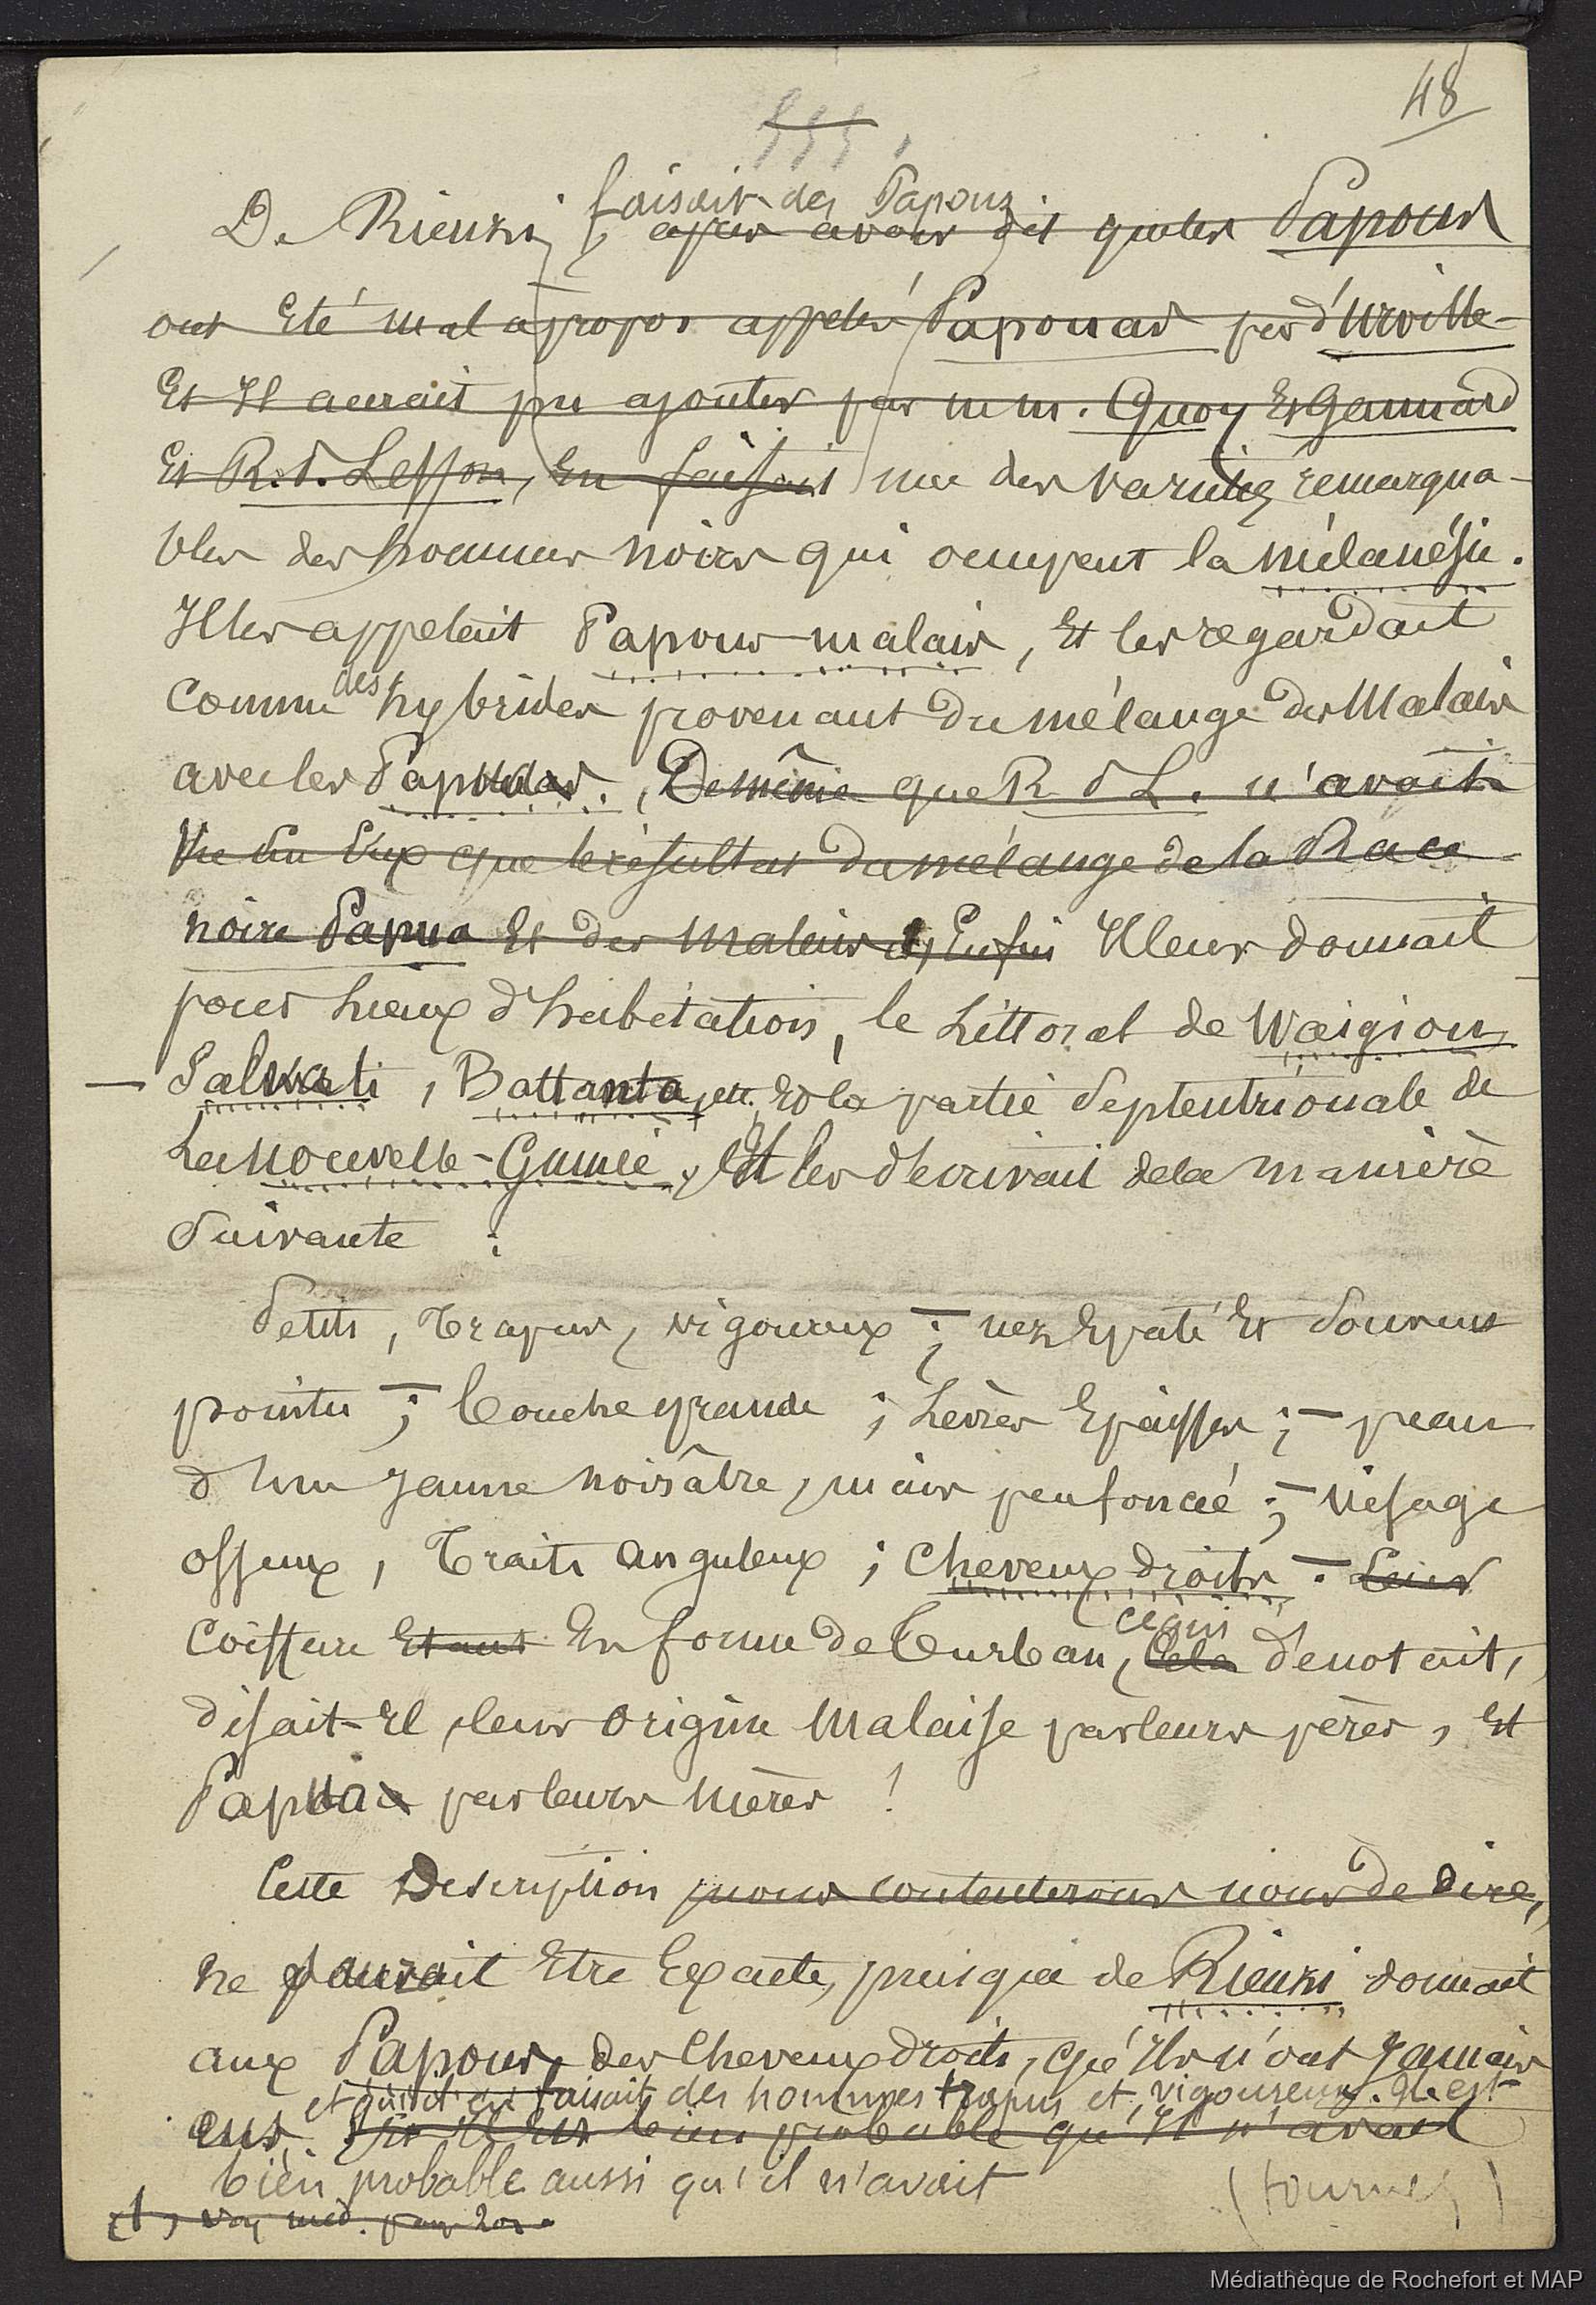 48
555,
faisait des Papous
De Rienzi, après avoir dit que les Papous
ont été mal à propos appelés Papouas par d'Urville
Et Il aurait pu ajouter par MM. Quoy Et Gaimard
Et R. P. Lesson, En faisait une des variétés remarqua-
bles des hommes noirs qui occupent la mélanésie.
Il les appelait Papous-malais, Et les regardait
comme des hybrides provenant du mélange des Malais
avec les Papouas. De même que R P L. n'avait
que le résultat du mélange de la Race
noire Papua Et des malais, Enfin Il leur donnait
pour lieux d'habitation, le littoral de Waigiou,
— Salwati, Battanta, etc. Et la partie Septentrionale de
La nouvelle-Guinée, Et les décrivait de la manière
Suivante :
Petits, Trapus, vigoureux ; — nez Epaté Et Souvent
pointu ; — bouche grande ; Lèvres Epaisses ; — peau
d'un jaune noirâtre, mais peu foncé ; — visage
osseux, Traits anguleux ; cheveux droits — Leur
Coiffure Etant En forme de Turban, Cela ce qui dénotait,
disait-Il, leur origine Malaise par leurs pères, Et
Papoua par leurs mères !
Cette Description nous contenterons nous de dire,
ne saurait Etre Exacte, puisque de Rienzi donnait
aux Papous, des Cheveux droits, qu'Ils n'ont Jamais
et qu'il en faisait des hommes trapus et vigoureux. Il est
eus. Il Est bien probable qu'Il n'avait
bien probable aussi qu'il n'avait
(tournez)
(1)
Médiathèque de Rochefort et MAP